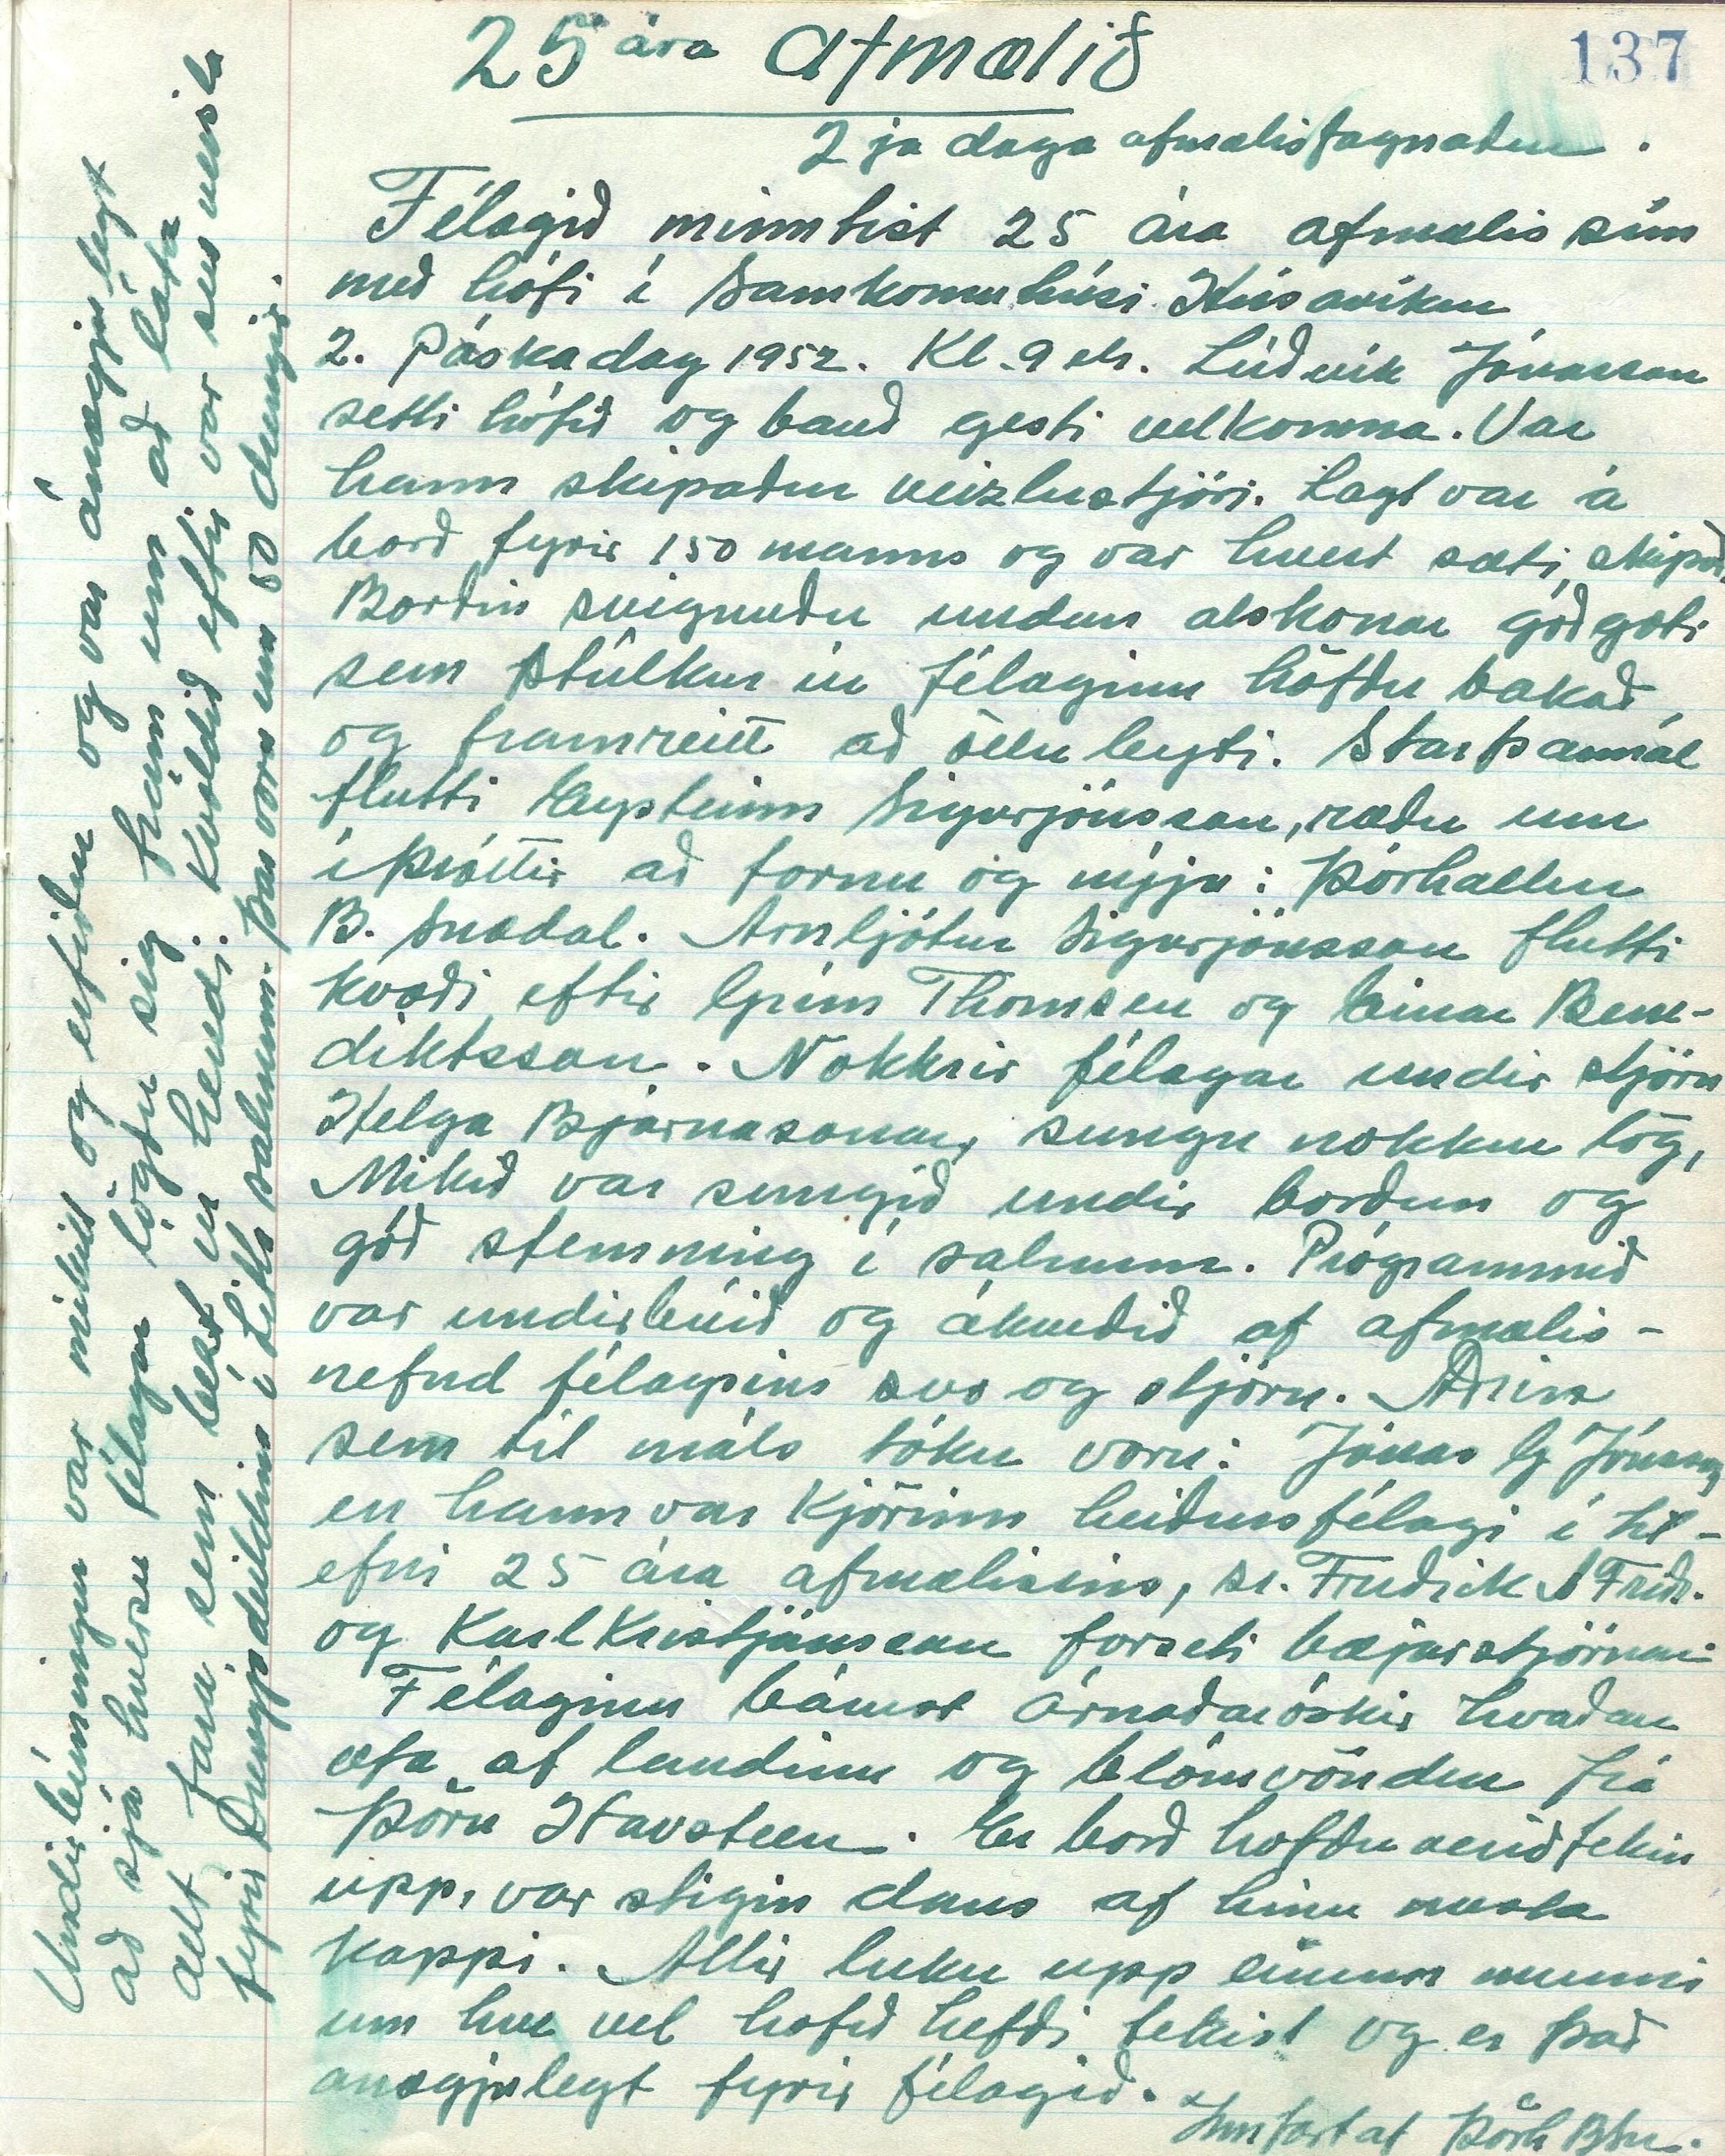 137
25 ára afmælið
2ja daga afmælisfagnaður.
Félagið minntist 25 ára afmælis síns
með hófi í Samkomuhúsi Húsavíkur
2. Páskadag 1952. Kl. 9 eh. Lúðvík Jónasson
setti hófið og bauð gesti velkomna. Var
hann skipaður veizlustjóri. Lagt var á
borð fyrir 150 manns og var hvert sæti skipað.
Borðin svignuðu undan alskonar góðgæti
sem stúlkur úr félaginu höfðu bakað,
og framreitt að öllu leyti. Starfsannál
flutti Eysteinn Sigurjónsson, ræðu um
íþróttir að fornu og nýju: Þórhallur
B. Snædal. Arnljótur Sigurjónsson flutti
kvæði eftir Grím Thomsen og Einar Bene-
diktsson. Nokkrir félagar undir stjórn
Helga Bjarnasonar, sungu nokkur lög,
Mikið var sungið undir borðum og
góð stemming í salnum. Prógrammið
var undirbúið og ákveðið af afmælis-
nefnd félagsins svo og stjórn. Aðrir
sem til máls tóku voru: Jónas G Jónsson
en hann var kjörinn heiðursfélagi í til-
efni 25 ára afmælisins, sr. Friðrik A Friðr.
og Karl Kristjánsson forseti bæjarstjórnar
Félaginu bárust árnaðaróskir hvaðan
æfa af landinu og blómvöndur frá
Þóru Havsteen. Er borð höfðu verið tekin
upp, var stigin dans af hinu mesta
kappi. Allir luku upp einum munni
um hve vel hófið hefði tekist og er það
anægjulegt fyrir félagið.
Innfært af Þórh BSn.
Undirbúningur var mikill og erfiður og var ánægjulegt
að sjá hversu félagar lögðu sig fram um að láta
allt fara sem best úr hendi. Kvöldið eftir var svo veisla
fyrir Drengjadeildina í Litla salnum. Þar voru um 50 drengir.